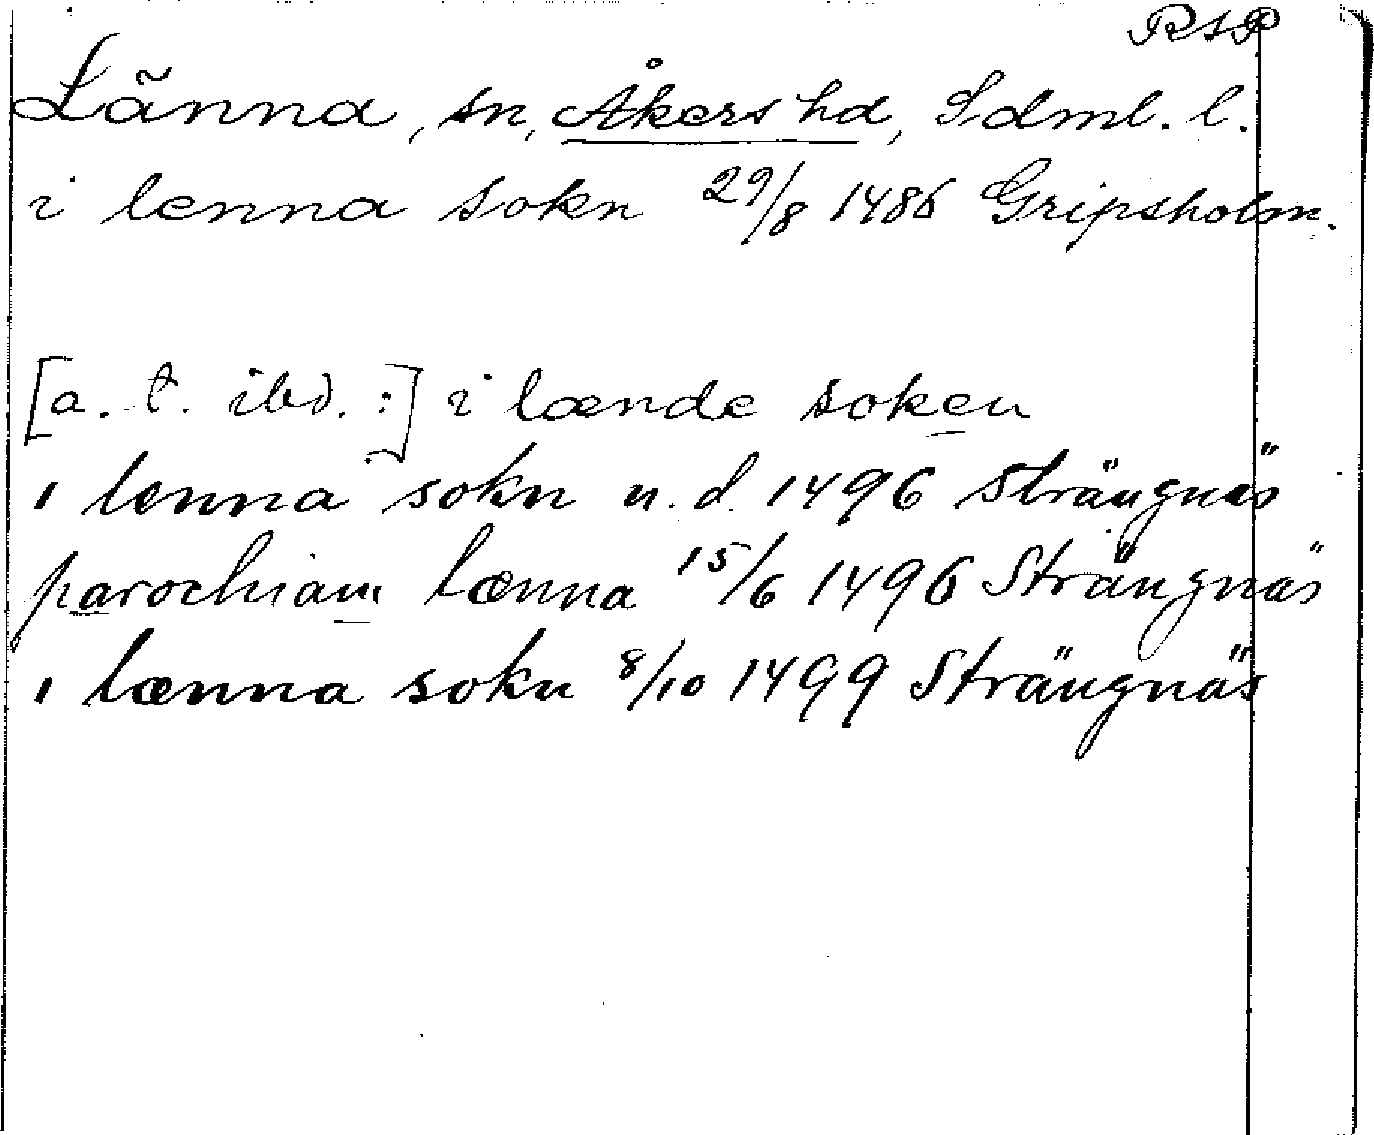 RSP
Länna, sn, Åkers hd, Sdml. l.
i lenna sokn 29/8 1486 Gripsholm.
[a. t. ibd. :] i lænde soken
i lenna sokn u. d. 1496 Strängnäs
parochiam lænna 15/6 1496 Strängnäs
i lænna sokn 8/10 1499 Strängnäs